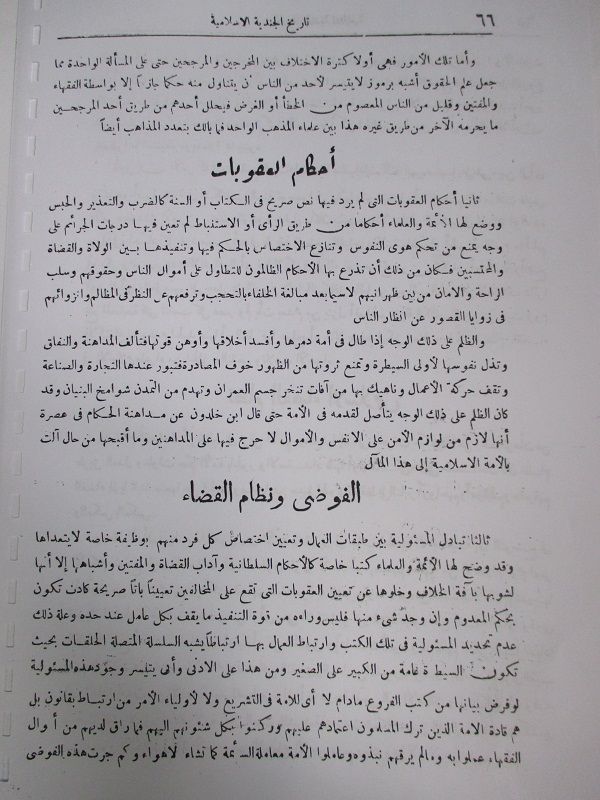 ٦٦
تاريخ الجندية الاسلامية
وأما تلك الأمور فهى أولا كثرة الاختلاف بين المخرجين والمرجحين حتى على المسألة الواحدة مما
جعل علم الحقوق أشبه برموز لا يتيسر لأحد من الناس أن يتناول منه حكما جازما إلا بواسطة الفقهاء
والمفتين وقليل من الناس المعصوم من الخطأ أو الغرض فيحلل أحدهم من طريق أحد المرجحين
ما يحرمه الآخر من طريق غيره هذا بين علماء المذهب الواحد فما بالك بتعدد المذاهب أيضاً
أحكام العقوبات
ثانيا أحكام العقوبات التى لم يرد فيها نص صريح فى الكتاب أو السنة كالضرب والتعذير والحبس
ووضع لها الأئمة والعلماء أحكاما من طريق الرأى أو الاستنباط لم تعين فيها درجات الجرائم على
وجه يمنع من تحكم هوى النفوس وتنازع الاختصاص بالحكم فيها وتنفيذها بين الولاة والقضاة
والمحتسبين فكان من ذلك أن تذرع بها الأحكام الظالمون للتطاول على أموال الناس وحقوقهم وسلب
الراحة والامان من بين ظهرانيهم لاسيما بعد مبالغة الخلفاء بالتحجب وترفعهم عن النظر فى المظالم وانزوائهم
فى زوايا القصور عن انظار الناس
والظلم على ذلك الوجه إذا طال فى أمة دمرها وأفسد أخلاقها وأوهن قوتها فتألف المداهنة والنفاق
وتذل نفوسها لأولى السيطرة وتمنع ثروتها من الظهور خوف المصادرة فتبور عندها التجارة والصناعة
وتقف حركة الأعمال وناهيك بها من آفات تنخر جسم العمران وتهدم من التمدن شوامخ البنيان وقد
كان الظلم على ذلك الوجه يتأصل لقدمه فى الأمة حتى قال ابن خلدون عن مداهنة الحكام فى عصرة
أنها لازم من لوازم الأمن على الانفس والأموال لا حرج فيها على المداهنين وما أقبحها من حال آلت
بالأمة الاسلامية إلى هذا المآل
الفوضى ونظام القضاء
ثالثا تبادل المسئولية بين طبقات العمال وتعيين اختصاص كل فرد منهم بوظيفة خاصة لا يتعداها
وقد وضح لها الأئمة والعلماء كتبا خاصة كالأحكام السلطانية وآداب القضاة والمفتين وأشباهها إلا أنها
لشوبها بآفة الخلاف وخلوها عن تعيين العقوبات التى تقع على المخالفين تعييناً باتاً صريحة كادت تكون
بحكم المعدوم وإن وجد شىء منها فليس وراءه من قوة التنفيذ ما يقف بكل عامل عند حده وعلة ذلك
عدم تحديد المسئولية فى تلك الكتب وارتباط العمال بها ارتباطاً يشبه السلسلة المتصلة الحلقات بحيث
تكون السيطرة عامة من الكبير على الصغير ومن هذا على الادنى وأنى يتيسر وجود هذه المسئولية
لو فرض بيانها من كتب الفروع مادام لا أى للامة فى التشريع ولا لأولياء الأمر من ارتباط بقانون بل
هم قادة الامة الذين ترك المسلمون اعتمادهم عليهم وركنوا بكل شئونهم اليهم فما راق لديهم من أقوال
الفقهاء عملوا به ومالم يرقهم نبذوه وعاملوا الأمة معاملة السائمة كما تشاء لأهواء وكم جرت هذه الفوضى